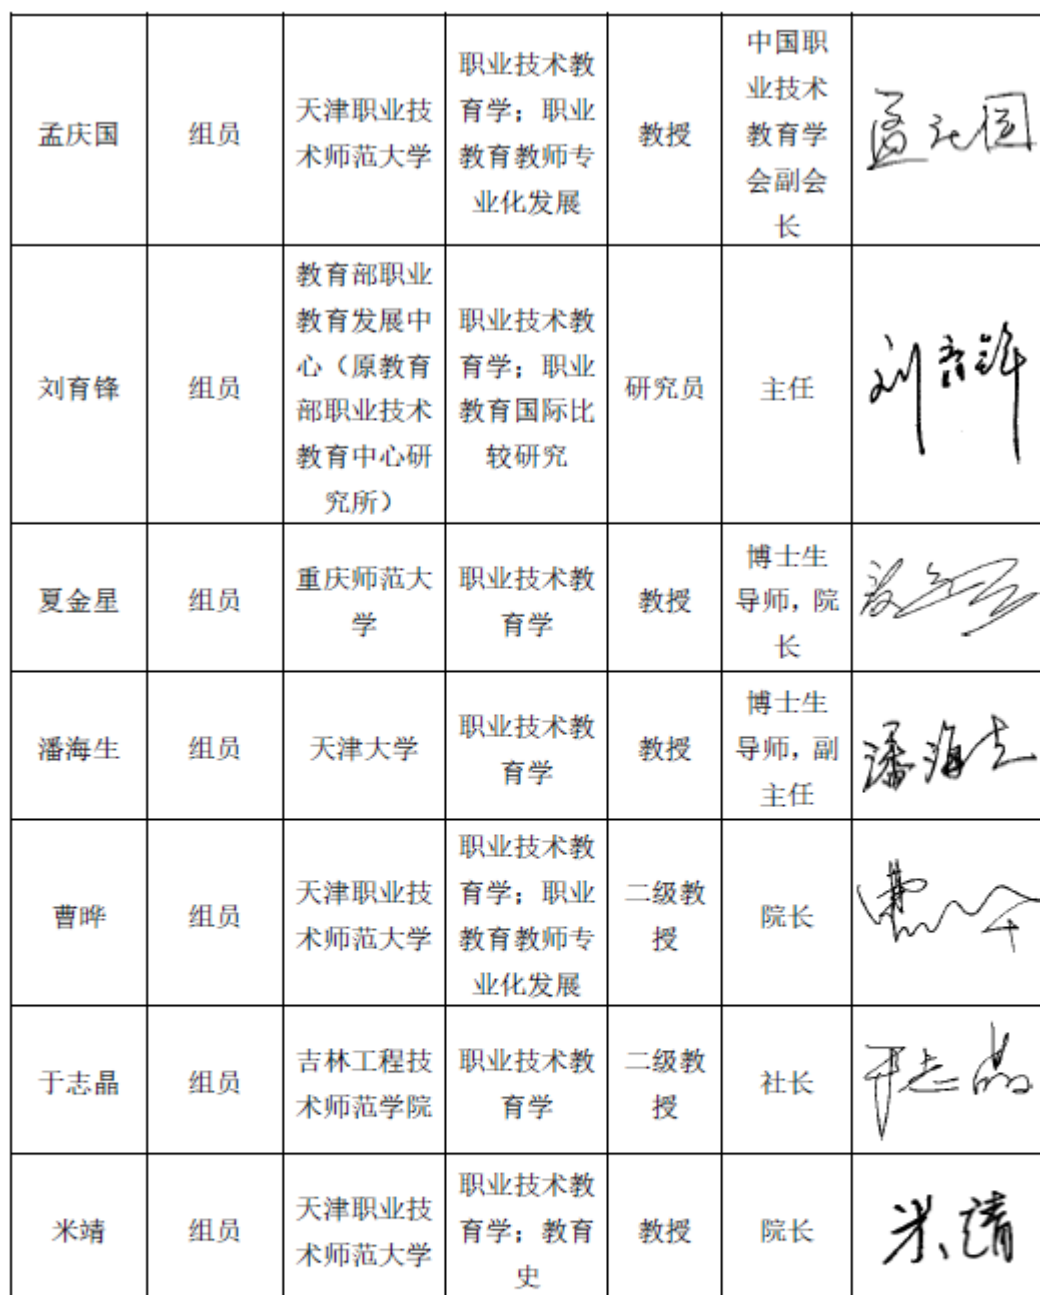 孟庆国
组员
天津职业技
术师范大学
职业技术教
育学；职业
教育教师专
业化发展
教授
中国职
业技术
教育学
会副会
长
孟庆国
刘育锋
组员
教育部职业
教育发展中
心（原教育
部职业技术
教育中心研
究所）
职业技术教
育学；职业
教育国际比
较研究
研究员
主任
刘育锋
夏金星
组员
重庆师范大
学
职业技术教
育学
教授
博士生
导师，院
长
夏金星
潘海生
组员
天津大学
职业技术教
育学
教授
博士生
导师，副
主任
潘海生
曹晔
组员
天津职业技
术师范大学
职业技术教
育学；职业
教育教师专
业化发展
二级教
授
院长
于志晶
组员
吉林工程技
术师范学院
职业技术教
育学
二级教
授
社长
于志晶
米靖
组员
天津职业技
术师范大学
职业技术教
育学；教育
史
教授
院长
米靖